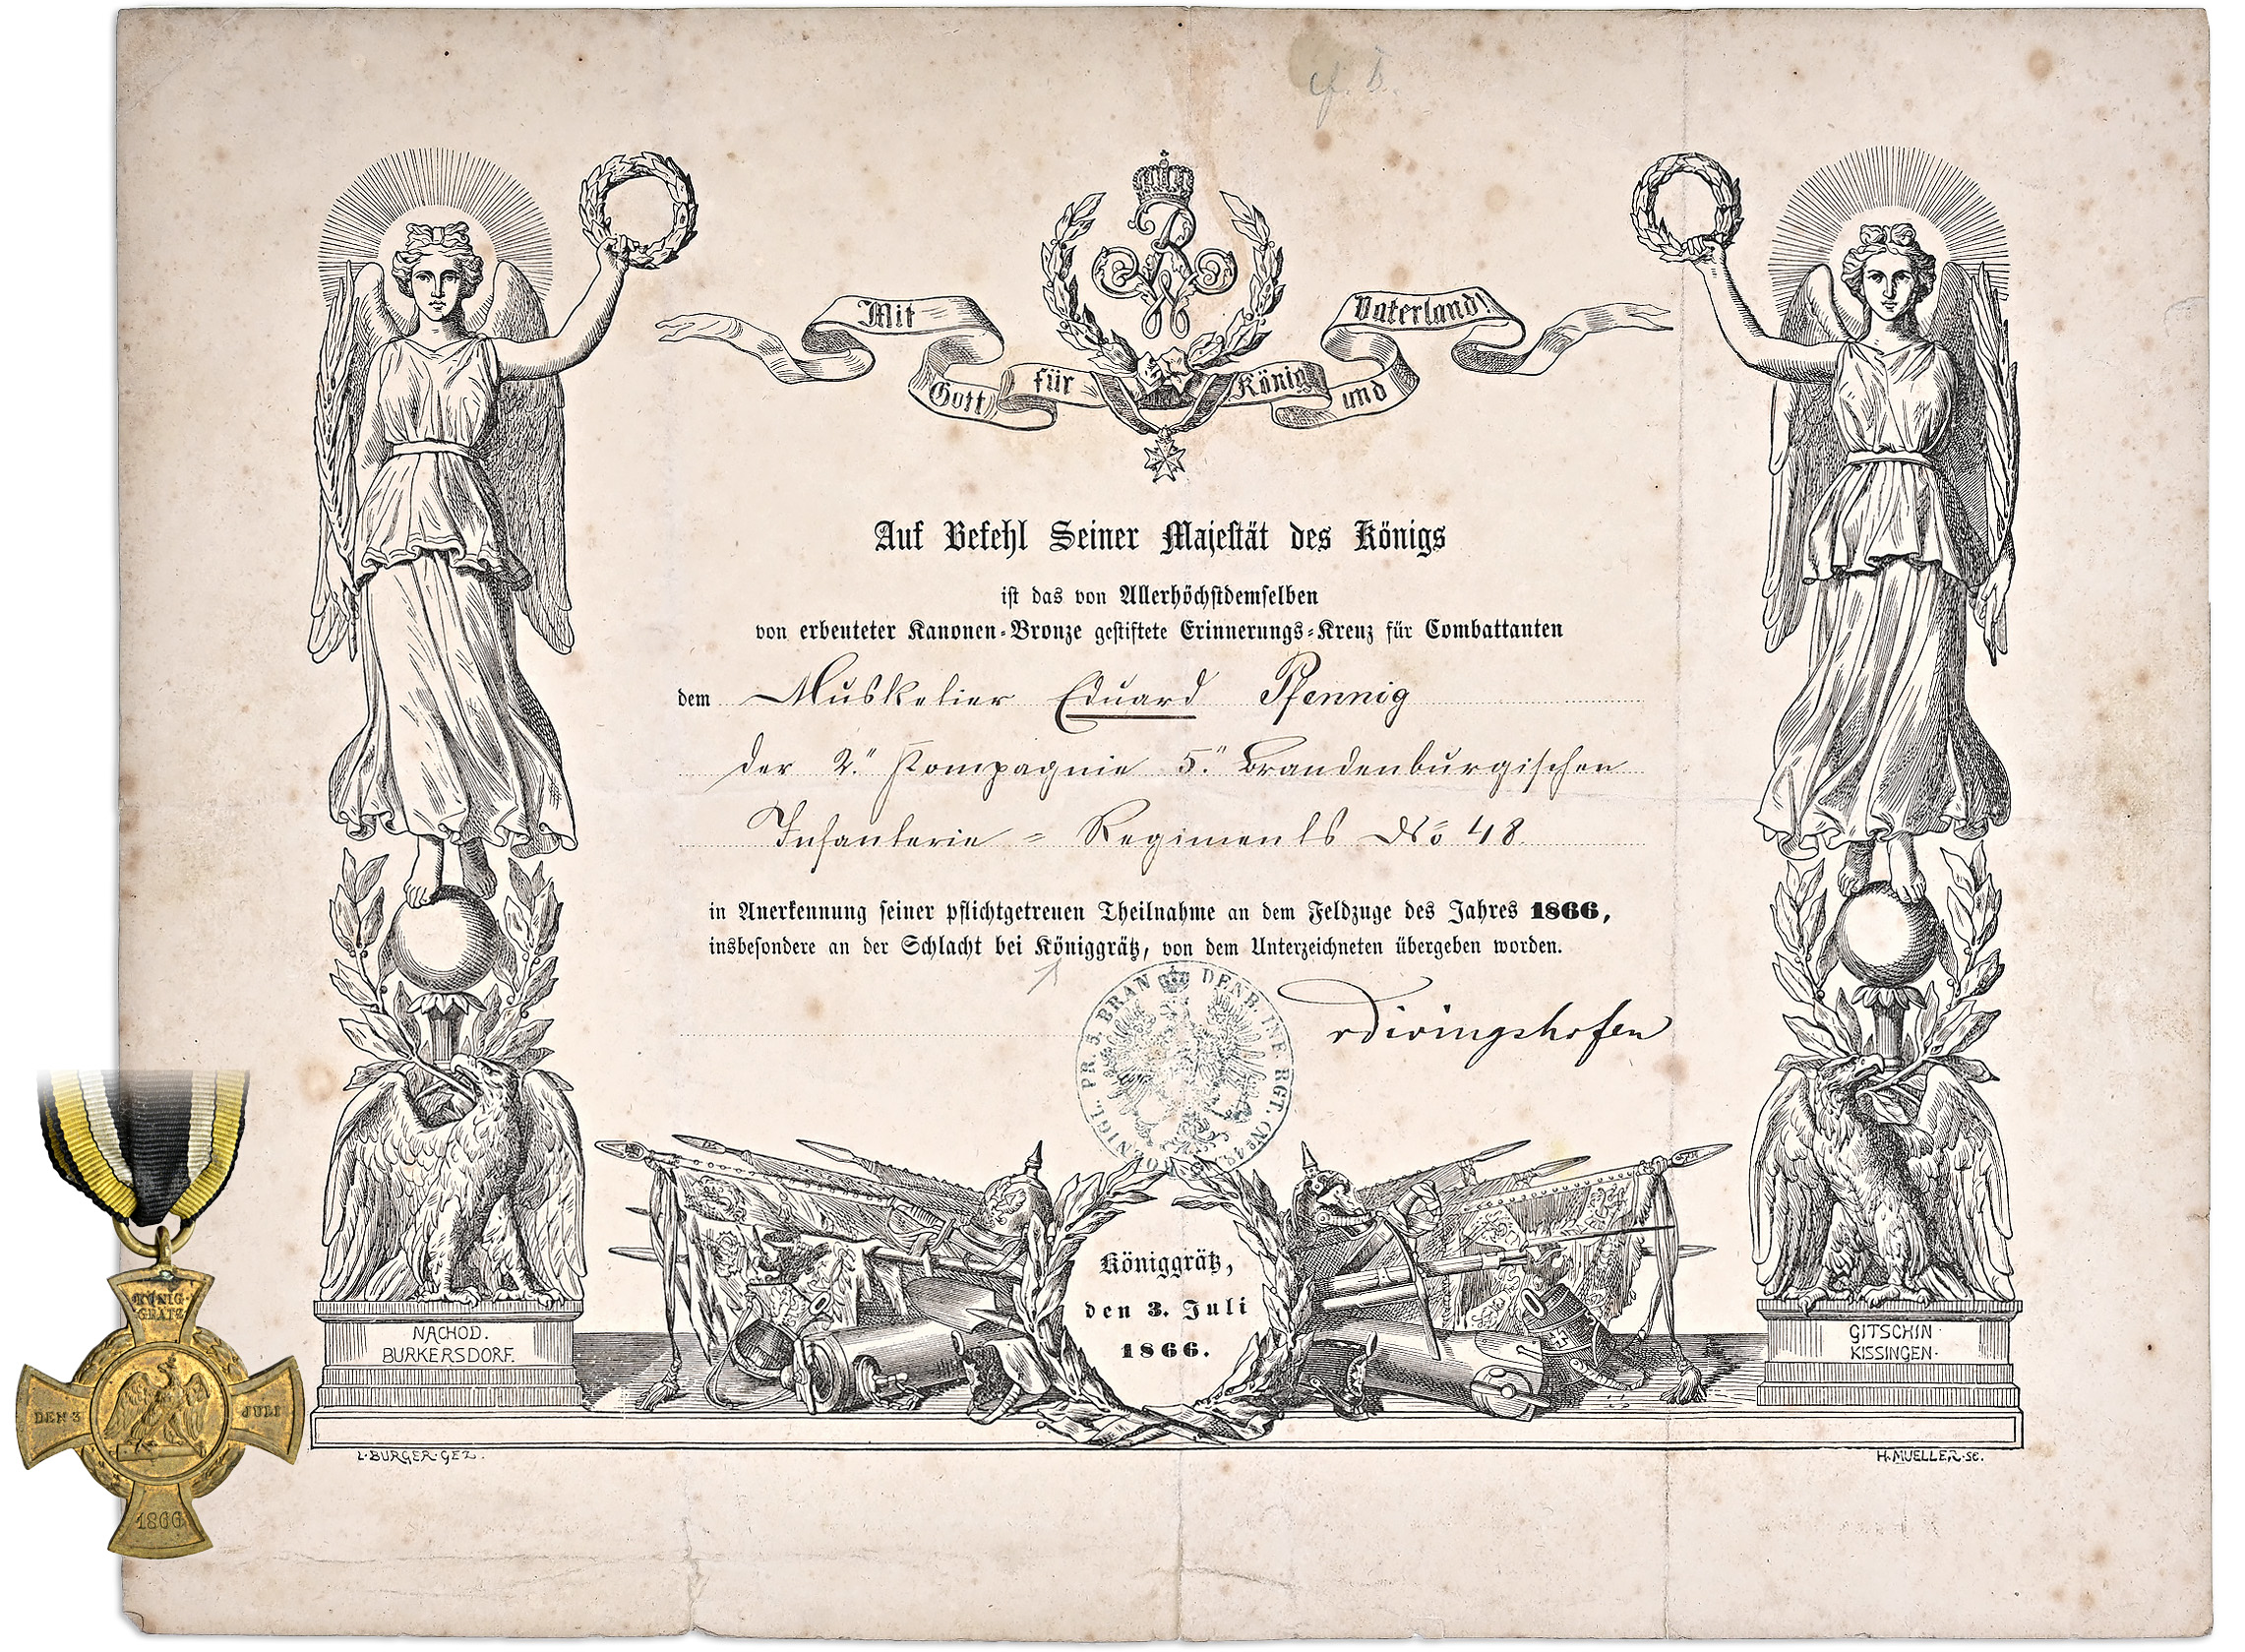 cf. D.
Mit Gott für König und Vaterland!
Auf Befehl Seiner Majestät des Königs
ist das von Allerhöchstdemselben
von erbeuteter Kanonen-Bronze gestiftete Erinnerungs-Kreuz für Combattanten
dem Musketier Eduard Pfennig
der 2." Kompagnie 5." Brandenburgischen
Infanterie = Regiments No 48.
in Anerkennung seiner pflichtgetreuen Theilnahme an dem Feldzuge des Jahres 1866,
insbesondere an der Schlacht bei Königgrätz, von dem Unterzeichneten übergeben worden.
vDiringshofen
KÖNIGL. PR. 5. BRANDENB. INF. RGT. (No 48.)
Königgrätz,
den 3. Juli
1866.
NACHOD.
BURKERSDORF.
GITSCHIN.
KISSINGEN.
L. BURGER. GEZ.
H. MUELLER. SC.
KÖNIG-
GRÄTZ
DEN 3 JULI
1866